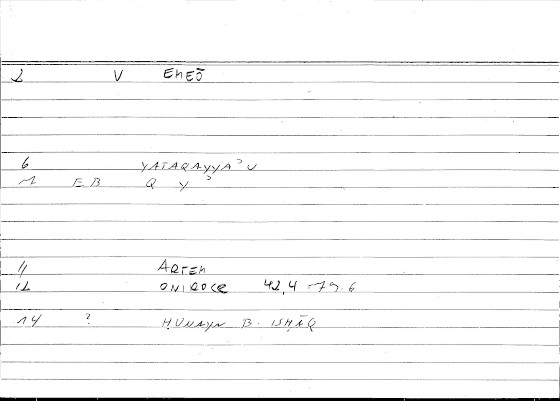 2 V EMEŌ
6 YATAQAYYAʾU
7 EB Q Y ʾ
11 ARTEM
12 ONIROCR 42,4 - 79.6
14 ? ḤUNAYN B. ISḤĀQ